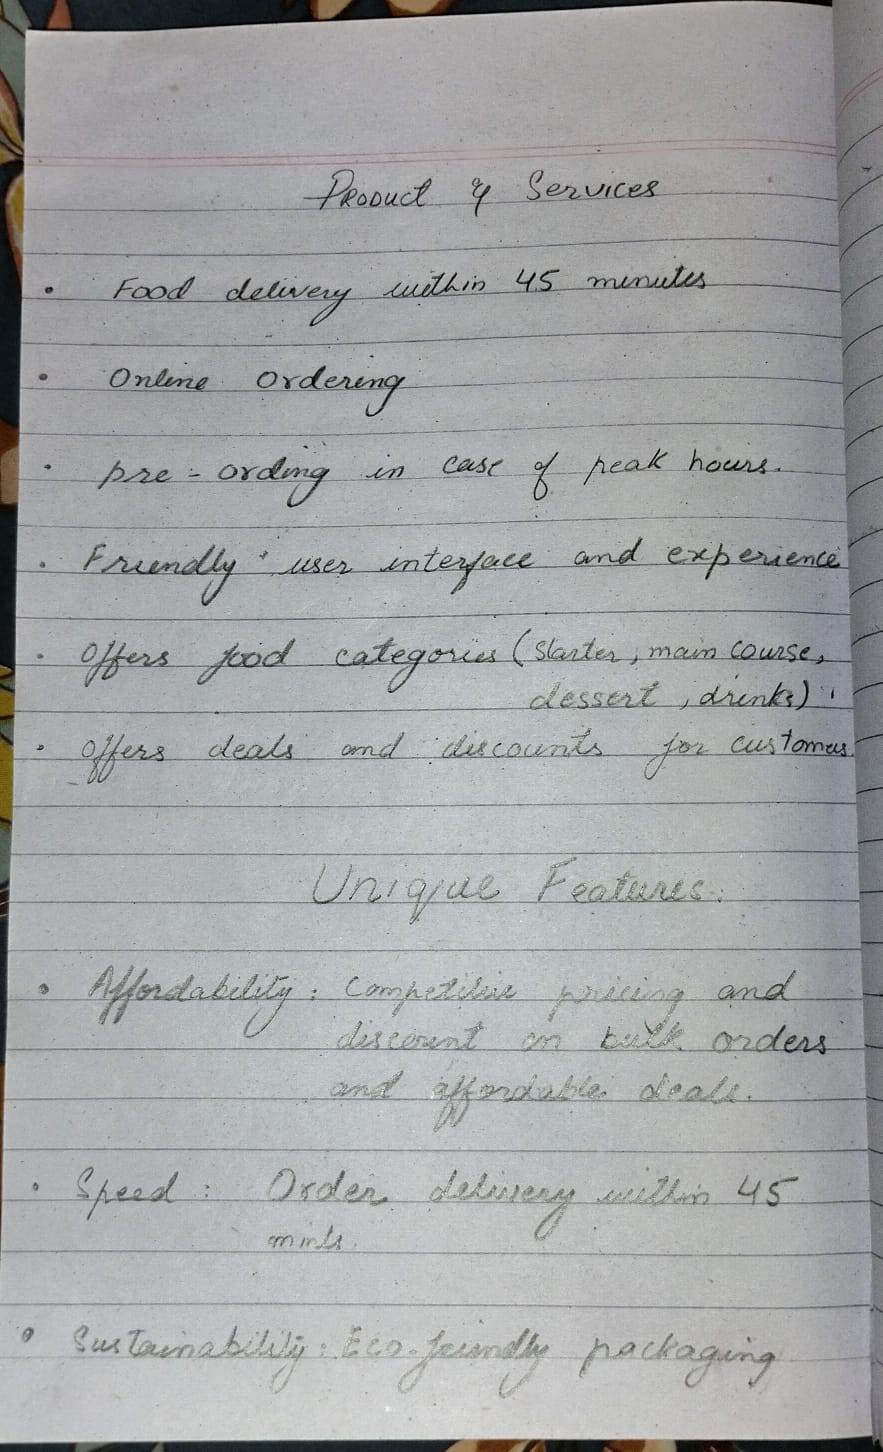 Product & Services
• Food delivery within 45 minutes
• Online Ordering
• pre-ording in case of peak hours.
• Friendly user interface and experience
• Offers food categories (Starter, main course,
dessert, drinks)
• Offers deals and discounts for customers
Unique Features.
• Affordability : Competitive pricing and
discount on bulk orders
and affordable deals.
• Speed : Order delivery within 45
mints.
• Sustainability : Eco-friendly packaging